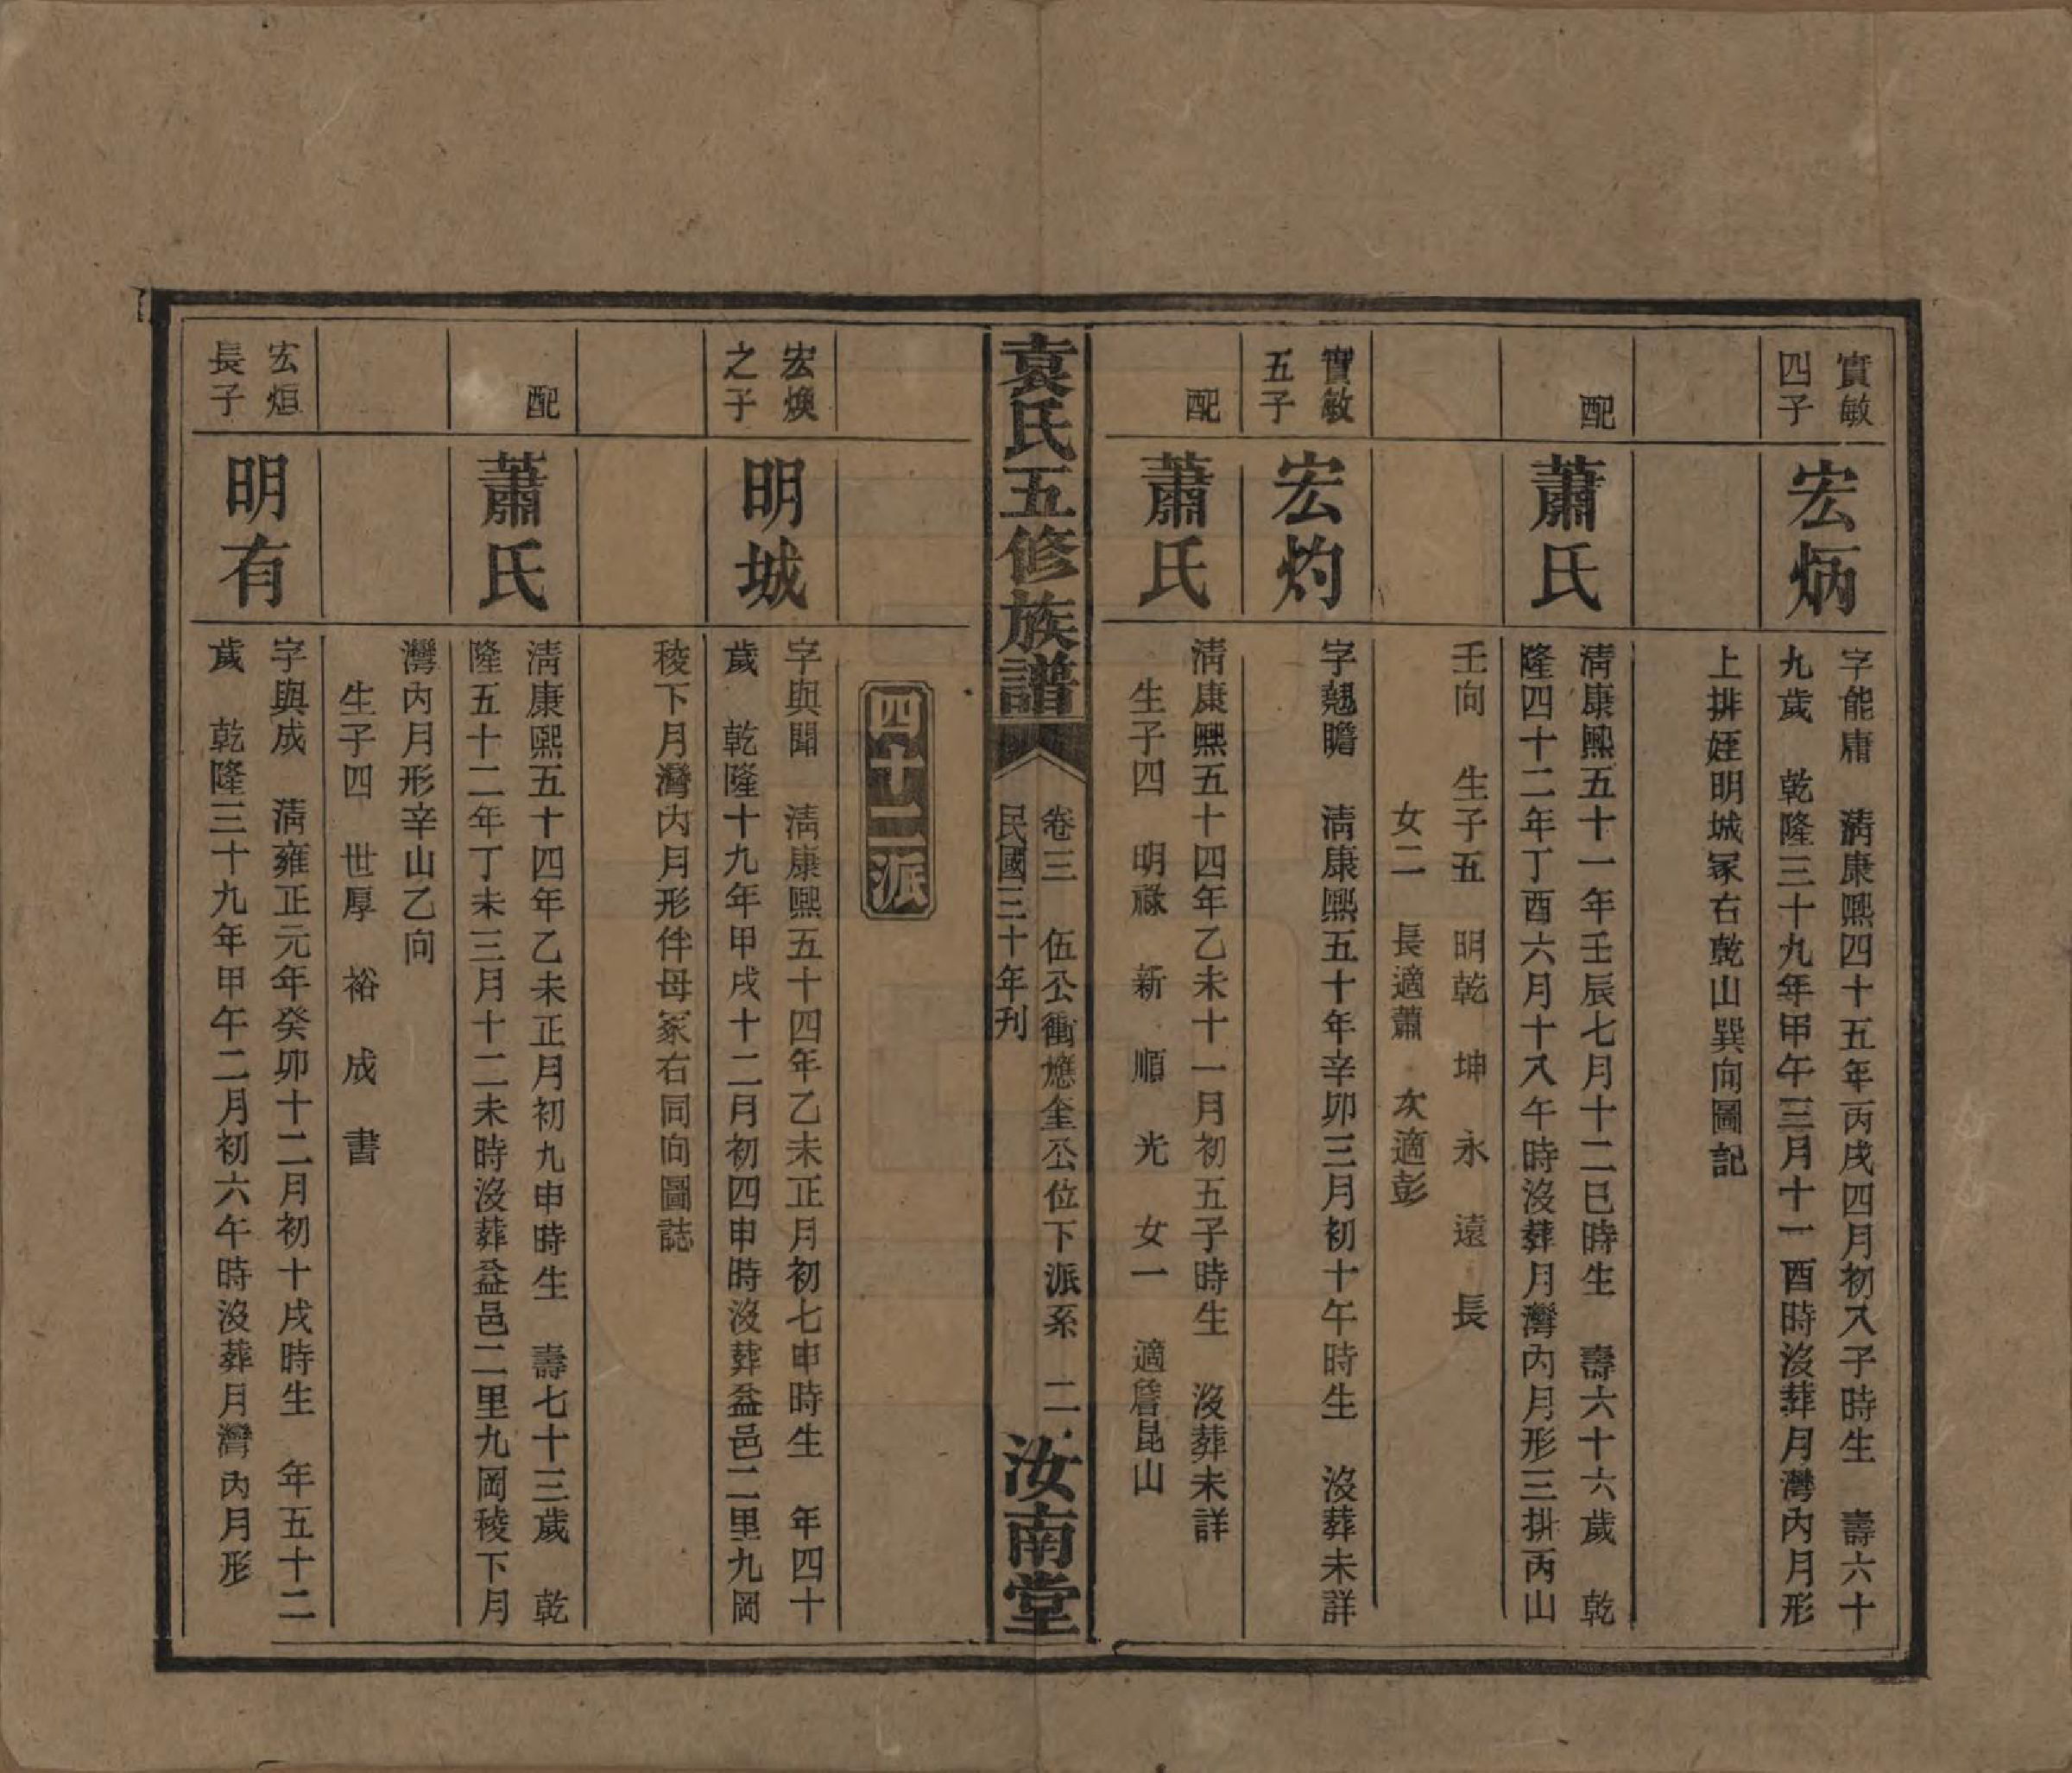 實敏
四子
宏炳
字能庸　淸康熙四十五年丙戌四月初八子時生　壽六十
九歲　乾隆三十九年甲午三月十一酉時沒葬月灣內月形
上排姪明城冢右乾山巽向圖記
配
蕭氏
淸康熙五十一年壬辰七月十二巳時生　壽六十六歲　乾
隆四十二年丁酉六月十八午時沒葬月灣內月形三排丙山
壬向　生子五　明乾　坤　永　遠　長
女二　長適蕭　次適彭
實敏
五子
宏灼
字翹瞻　淸康熙五十年辛卯三月初十午時生　沒葬未詳
配
蕭氏
淸康熙五十四年乙未十一月初五子時生　沒葬未詳
生子四　明祿　新　順　光　女一　適詹昆山
袁氏五修族譜
卷三　伍公衝應奎公位下派系　二
民國三十年刊
汝南堂
四十二派
宏煥
之子
明城
字與聞　淸康熙五十四年乙未正月初七申時生　年四十
歲　乾隆十九年甲戌十二月初四申時沒葬益邑二里九岡
稜下月灣內月形伴母冢右同向圖誌
配
蕭氏
淸康熙五十四年乙未正月初九申時生　壽七十三歲　乾
隆五十二年丁未三月十二未時沒葬益邑二里九岡稜下月
灣內月形辛山乙向
生子四　世厚　裕　成　書
宏烜
長子
明有
字與成　淸雍正元年癸卯十二月初十戌時生　年五十二
歲　乾隆三十九年甲午二月初六午時沒葬月灣內月形